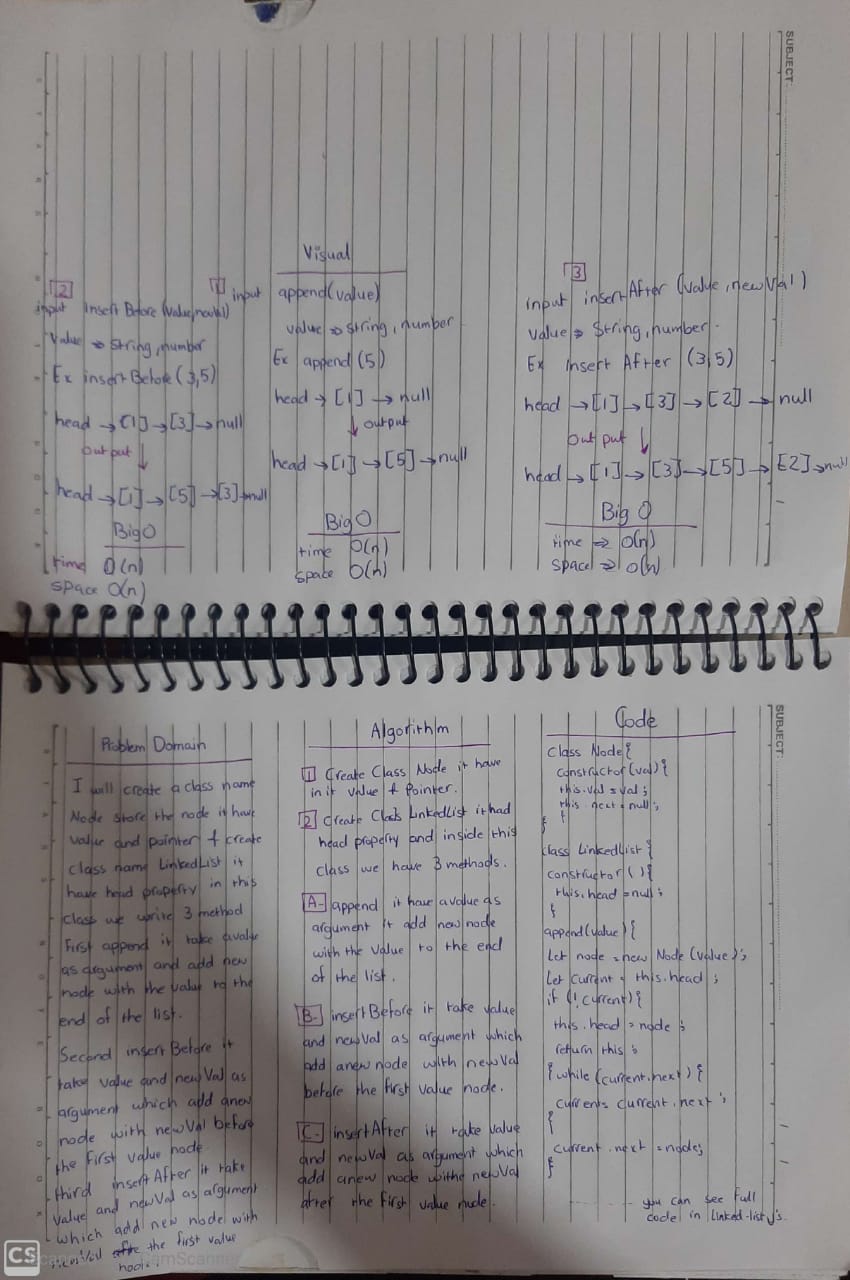 SUBJECT:
Visual
2
input insertBefore (value, newVal)
value ⇒ string, number
Ex insertBefore (3,5)
head → [1] → [3] → null
output ↓
head → [1] → [5] → [3] → null
Big O
time O(n)
space O(n)
1
input append(value)
value ⇒ string, number
Ex append (5)
head → [1] → null
↓ output
head → [1] → [5] → null
Big O
time O(n)
space O(n)
3
input insertAfter (value, newVal)
value ⇒ string, number.
Ex insert After (3,5)
head → [1] → [3] → [2] → null
output ↓
head → [1] → [3] → [5] → [2] → null
Big O
time ⇒ O(n)
space ⇒ O(n)
SUBJECT:
Problem Domain
I will create a class name
Node store the node it have
value and pointer & create
class name LinkedList it
have head property in this
class we write 3 method
First append it take a value
as argument and add new
node with the value to the
end of the list.
Second insertBefore it
take value and newVal as
argument which add anew
node with newVal before
the first value node
third insertAfter it take
value and newVal as argument
which add new node with
newVal after the first value
node.
Algorithm
1 Create Class Node it have
in it value & pointer.
2 Create Class LinkedList it had
head property and inside this
class we have 3 methods.
A- append it have a value as
argument it add new node
with the value to the end
of the list.
B- insertBefore it take value
and newVal as argument which
add anew node with newVal
before the first value node.
C- insertAfter it take value
and newVal as argument which
add anew node withe newVal
after the first value node.
Code
class Node{
constructor(val){
this.val = val;
this.next = null;
}
}
class LinkedList {
constructor(){
this.head = null;
}
append(value){
let node = new Node (value);
let current = this.head;
if (!current){
this.head = node;
return this;
} while (current.next) {
current = current.next;
}
current.next = node;
}
you can see full
code in linked-list.js.
CS CamScanner